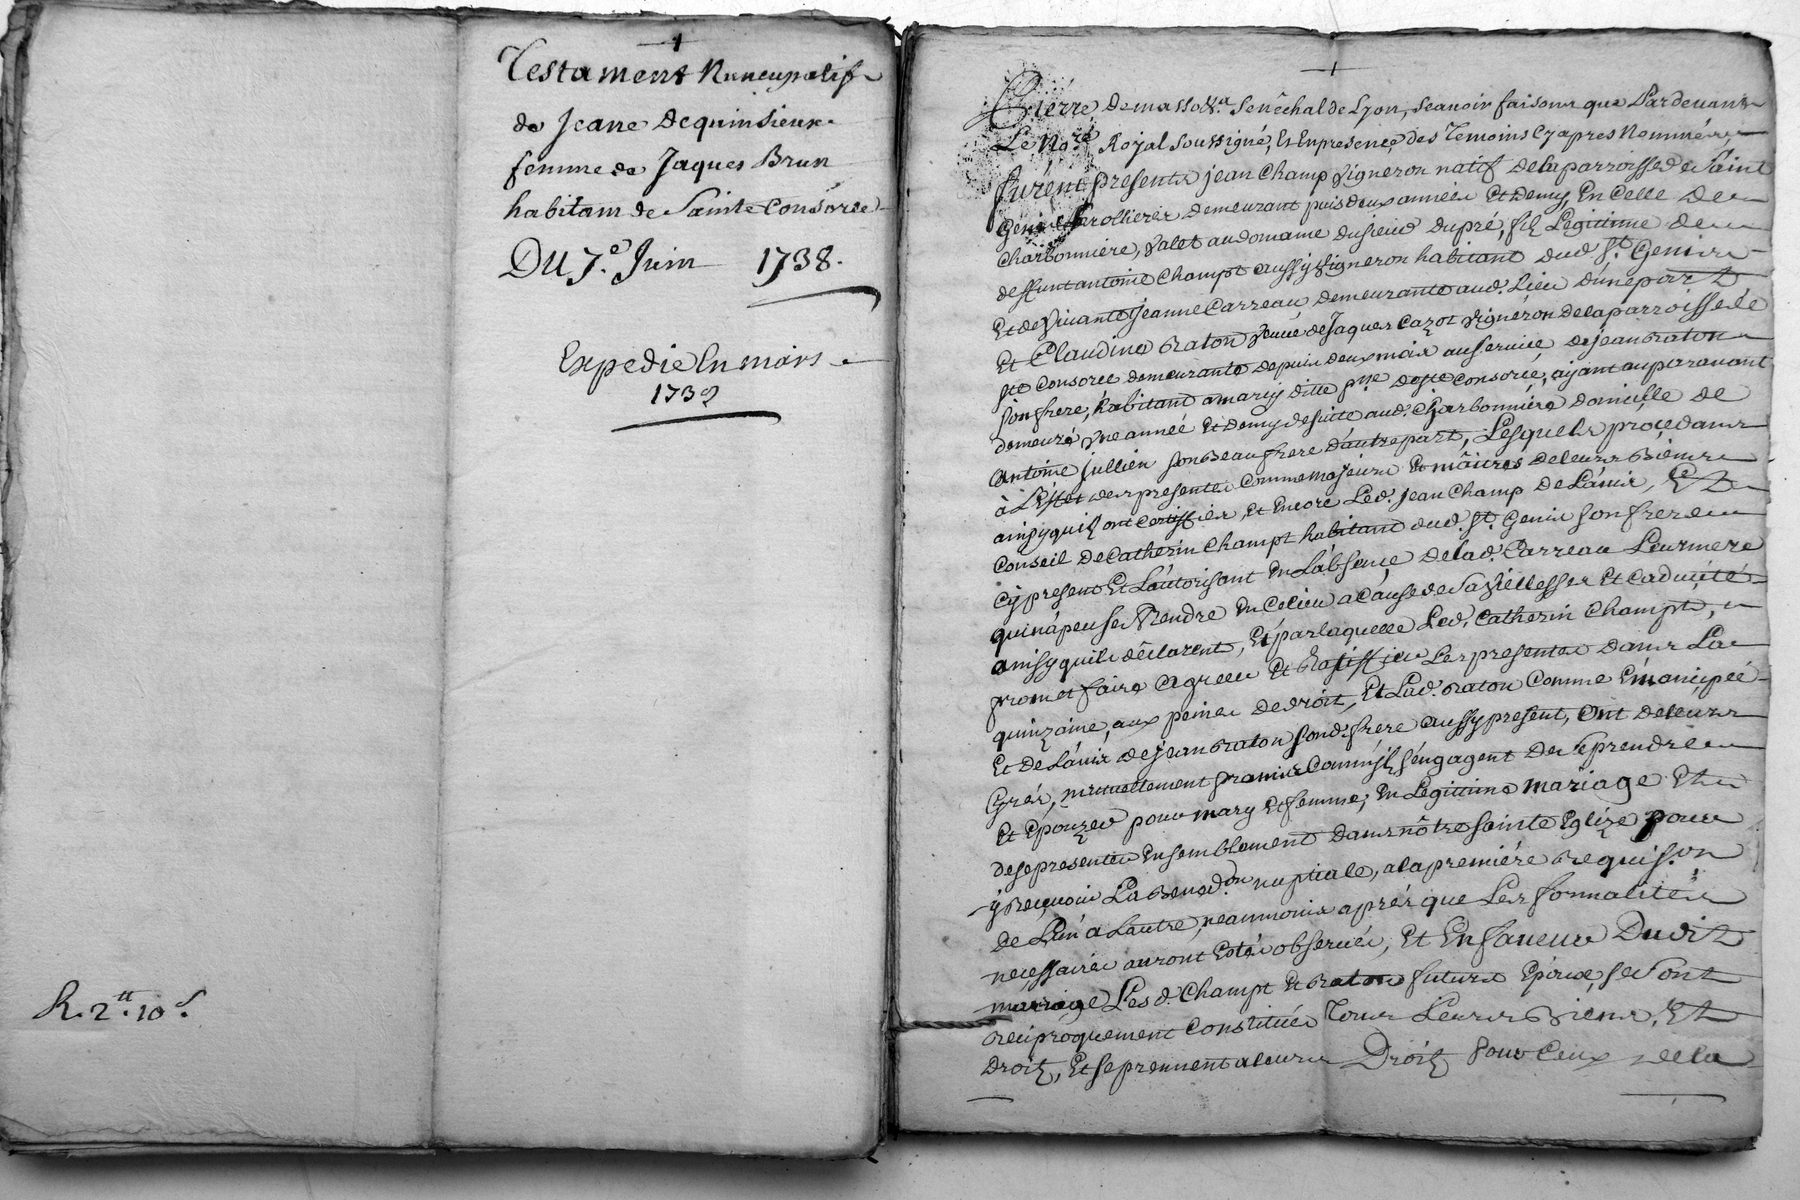 Testament Nuncupatif
de Jeane Dequinsieux
femme de Jaques Brun
habitam de Sainte Consorce
Du 7.e Juin 1738.
Expedié En mars
1739
R. 2.tt 10.s
Pierre Demasso &.a Senêchal de Lyon, scavoir faisons que Pardevant
Le No.re Royal Soussigné, Et En presence des Temoins Cy apres Nommés,
furent presents jean Champ vigneron natif de la parroisse de Saint
Genis Lerollieres demeurant puis deux années Et Demy, En Celle de
Charbonniere, valet au domaine du sieur dupré, fils Legitime de
deffunt antoine Champt aussy vigneron habitant dud. St. Genis
Et de vivante jeanne Carreau demeurante aud. Lieu d'une part Et
Et Claudine Raton veuve de Jaques Cazot vigneron de la parroisse de
Ste Consorce demeurante depuis deux mois au service de jean Raton
son frere, habitant a marcy ditte p.sse de Ste Consorce, ayant auparavant
demeuré une année Et Demy de suitte aud. Charbonniere domicille de
antoine jullien son Beau frere d'autre part, Lesquels procedans
à L'effet des presentes Comme majeurs Et maitres de leurs Biens
ainsy quils ont Certiffiés, Et Encore Led. jean Champ de L'avis, Et
Conseil de Catherin Champt habitant dud. St. Genis son frere
Cy present Et L'autorisant En L'absence de lad. Carreau Leur mere
qui n'a peu se Rendre En Ce lieu a Cause de sa viellesse Et Caducité
ainsy quils déclarent, Et par laquelle Led. Catherin Champt,
promet faire agreer Et Ratiffier Les presentes dans La
quinzaine, aux peines de droit, Et Lad. Raton Comme Emancipée
Et de L'avis de jean Raton son d. frere aussy present, Ont de leurs
Grés, mutuellement promis Comm'ils s'engagent de se prendre
Et Epouzer pour mary Et femme, En Legitime mariage Et
de se presenter Ensemblement dans nôtre sainte Eglize pour
y Reçevoir La Bened.on nuptiale, a la premiére Requis.on
de L'un a Lautre, neanmoins aprés que Les formalités
necessaires auront Estés observées, Et En faveur Dudit
mariage Les d. Champt Et Raton futurs Epoux, se sont
reciproquement Constitués Tous Leurs Biens, Et
Droits, Et se prennent a leurs Droits Pour Ceux de la